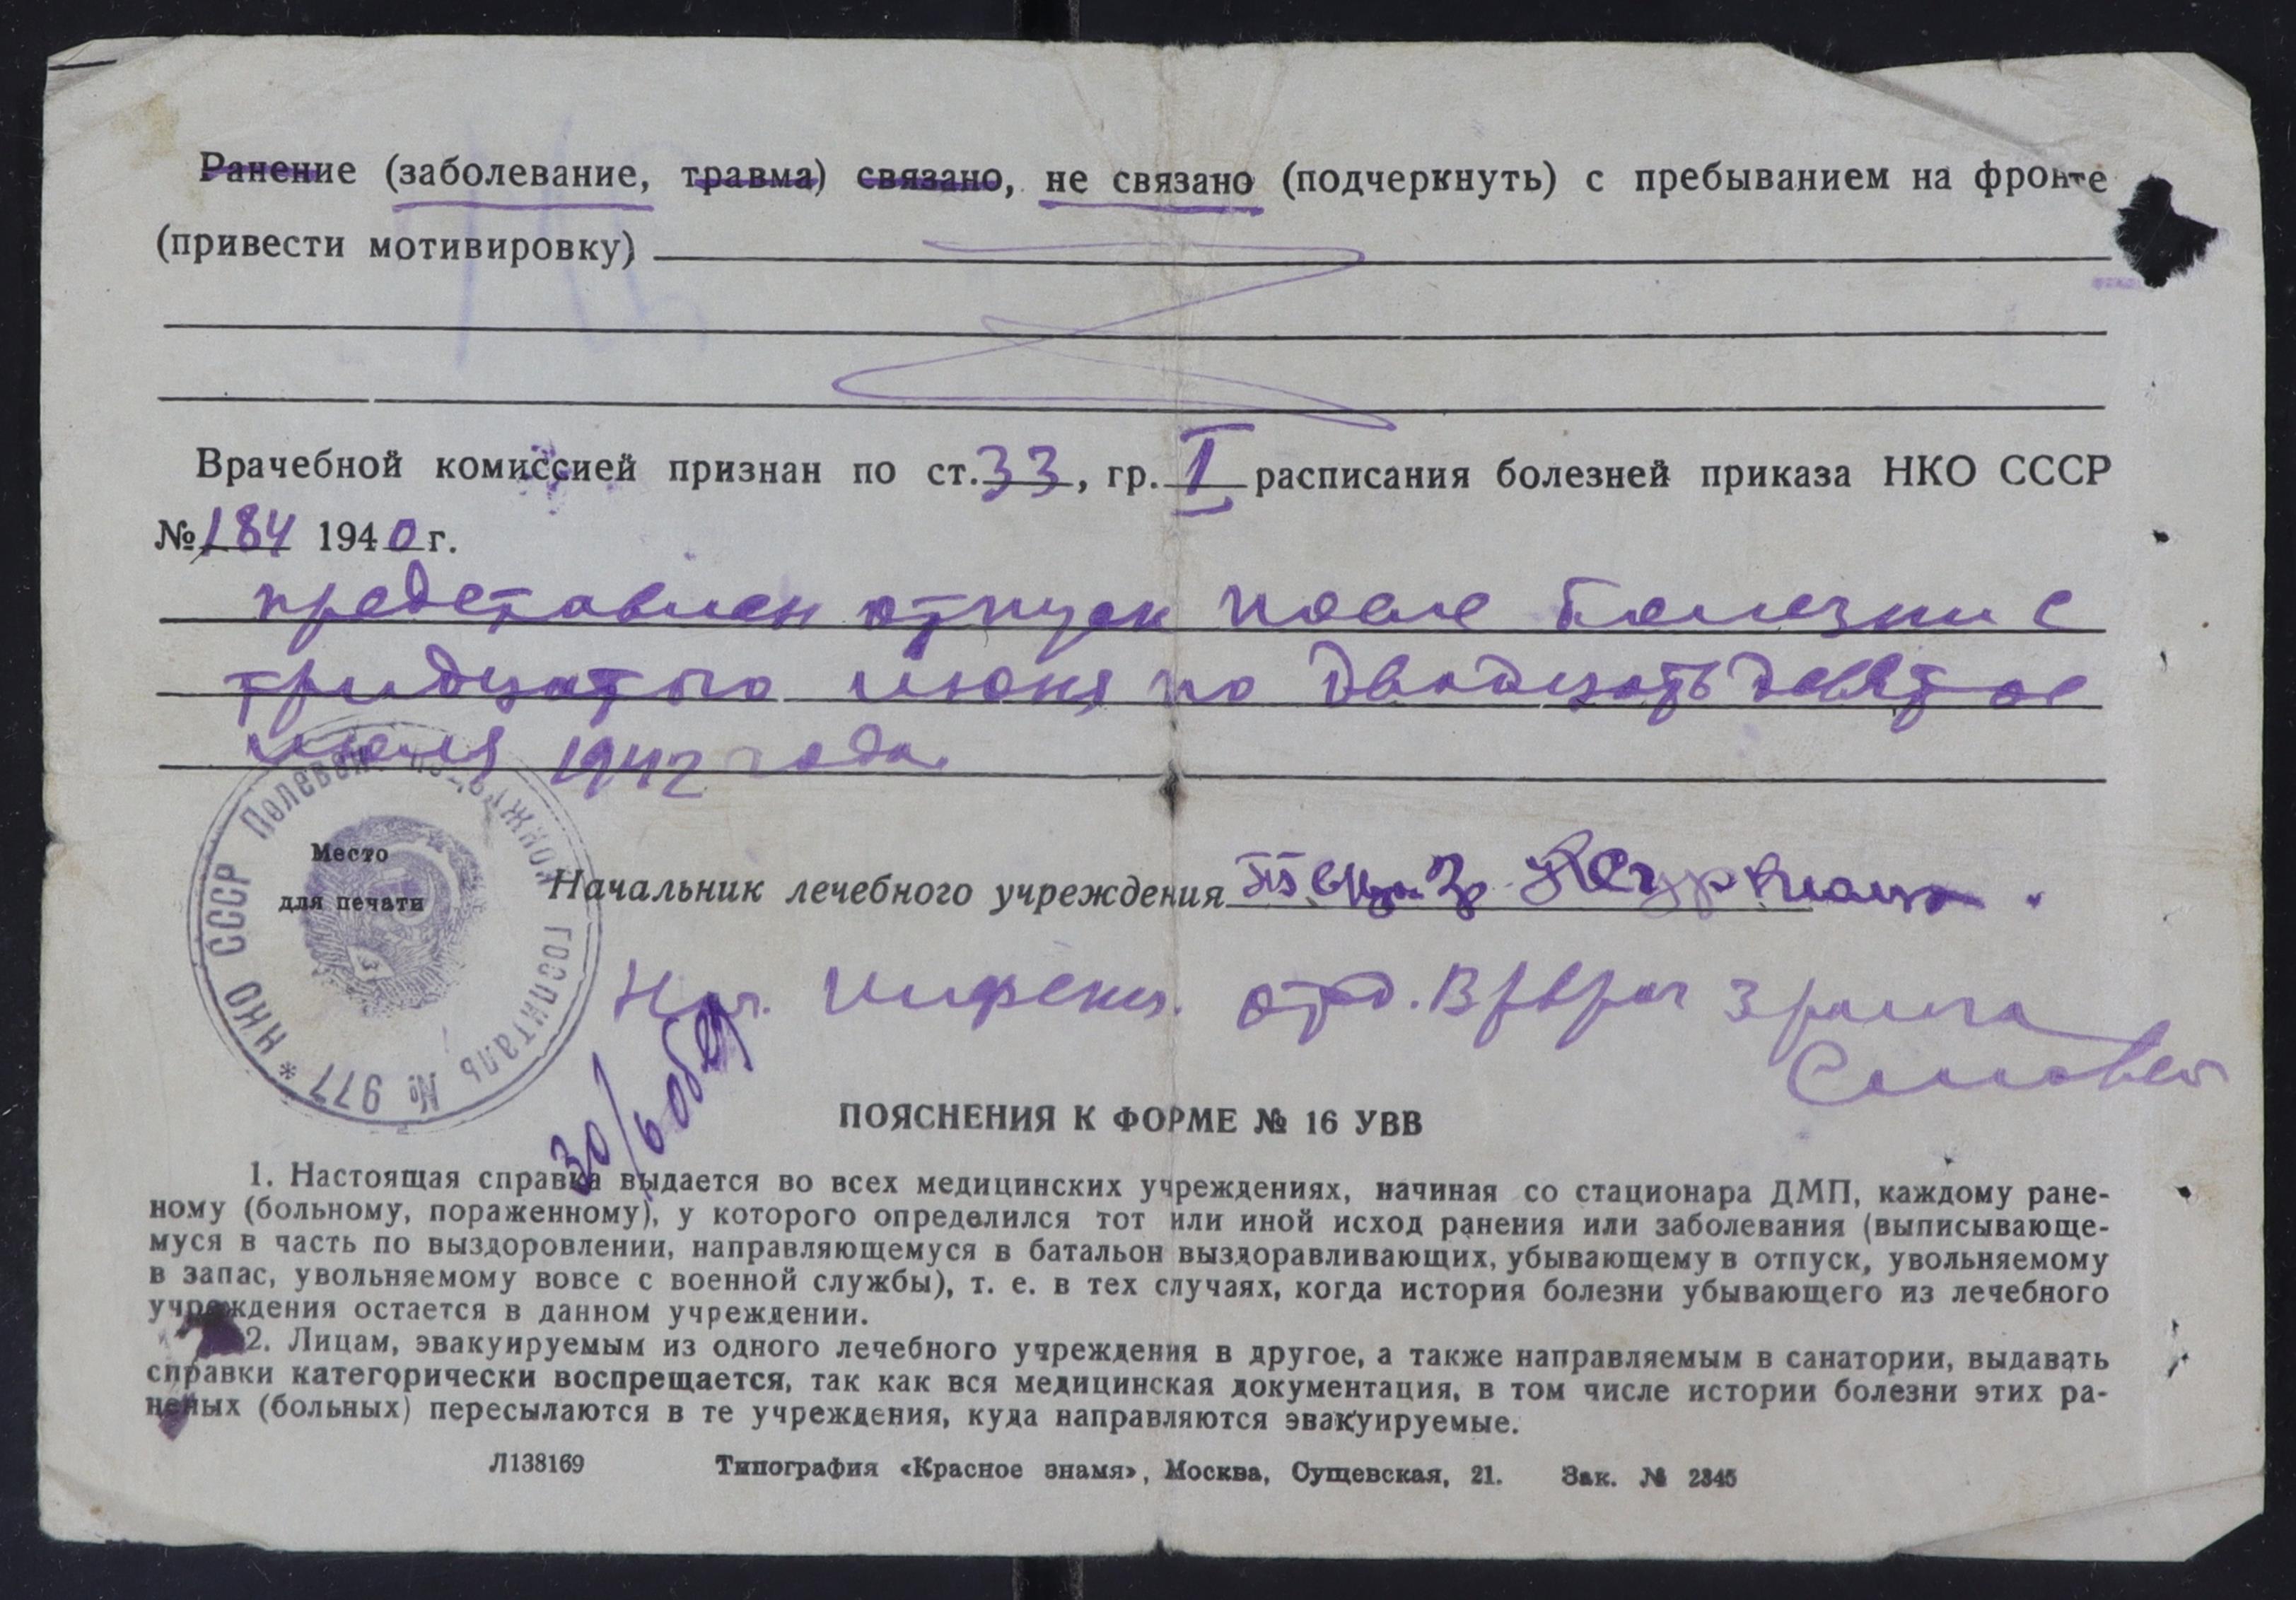 Ранение (заболевание, травма) связано, не связано (подчеркнуть) с пребыванием на фронте
(привести мотивировку)
Врачебной комиссией признан по ст. 33, гр. I расписания болезней приказа НКО СССР
№ 184 1940 г.
представлен отпуск после болезни с
тридцатого июня по двадцать девятое
июля 1942 года
НКО СССР Полевой госпиталь № 977 *
Место
для печати
Начальник лечебного учреждения
Нач. отд. В/врач 3 ранга
30/6
ПОЯСНЕНИЯ К ФОРМЕ № 16 УВВ
1. Настоящая справка выдается во всех медицинских учреждениях, начиная со стационара ДМП, каждому ране-
ному (больному, пораженному), у которого определился тот или иной исход ранения или заболевания (выписывающе-
муся в часть по выздоровлении, направляющемуся в батальон выздоравливающих, убывающему в отпуск, увольняемому
в запас, увольняемому вовсе с военной службы), т. е. в тех случаях, когда история болезни убывающего из лечебного
учреждения остается в данном учреждении.
2. Лицам, эвакуируемым из одного лечебного учреждения в другое, а также направляемым в санатории, выдавать
справки категорически воспрещается, так как вся медицинская документация, в том числе истории болезни этих ра-
неных (больных) пересылаются в те учреждения, куда направляются эвакуируемые.
Л138169 Типография «Красное знамя», Москва, Сущевская, 21. Зак. № 2345